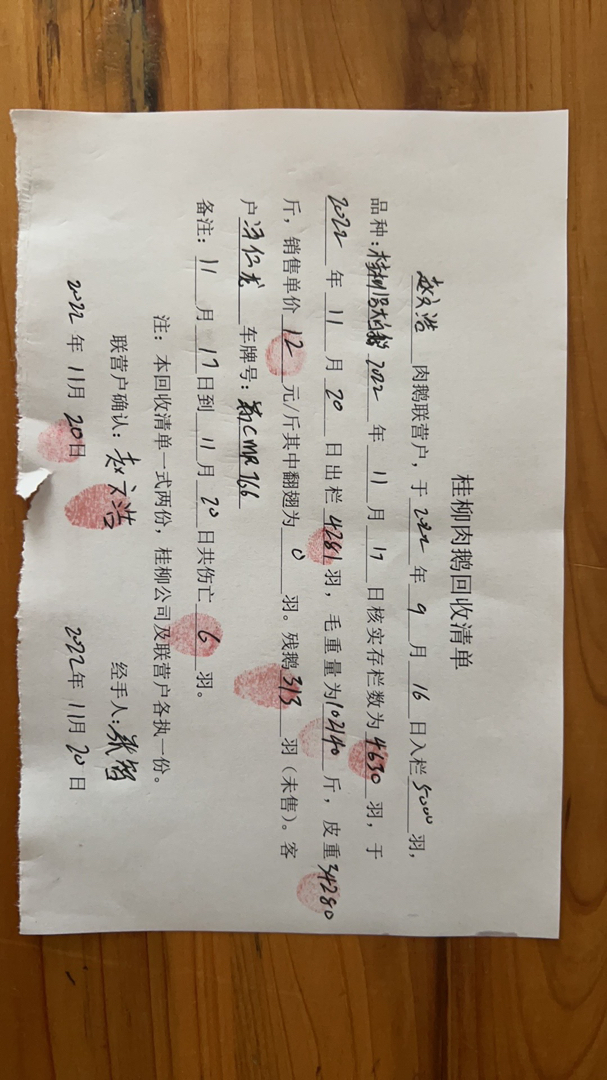 桂柳肉鹅回收清单
赵文浩 肉鹅联营户，于 2022 年 9 月 16 日入栏 5000 羽，
品种： 2022 年 11 月 17 日核实存栏数为 4630 羽，于
2022 年 11 月 20 日出栏 4281 羽，毛重量为 斤，皮重 34280
斤，销售单价 12 元/斤其中翻翅为 0 羽。残鹅 313 羽（未售）。客
户 冯仁龙 车牌号：
备注： 11 月 17 日到 11 月 20 日共伤亡 6 羽。
注：本回收清单一式两份，桂柳公司及联营户各执一份。
联营户确认：赵文浩 经手人：张智
2022 年 11月 20日 2022年 11月 20 日